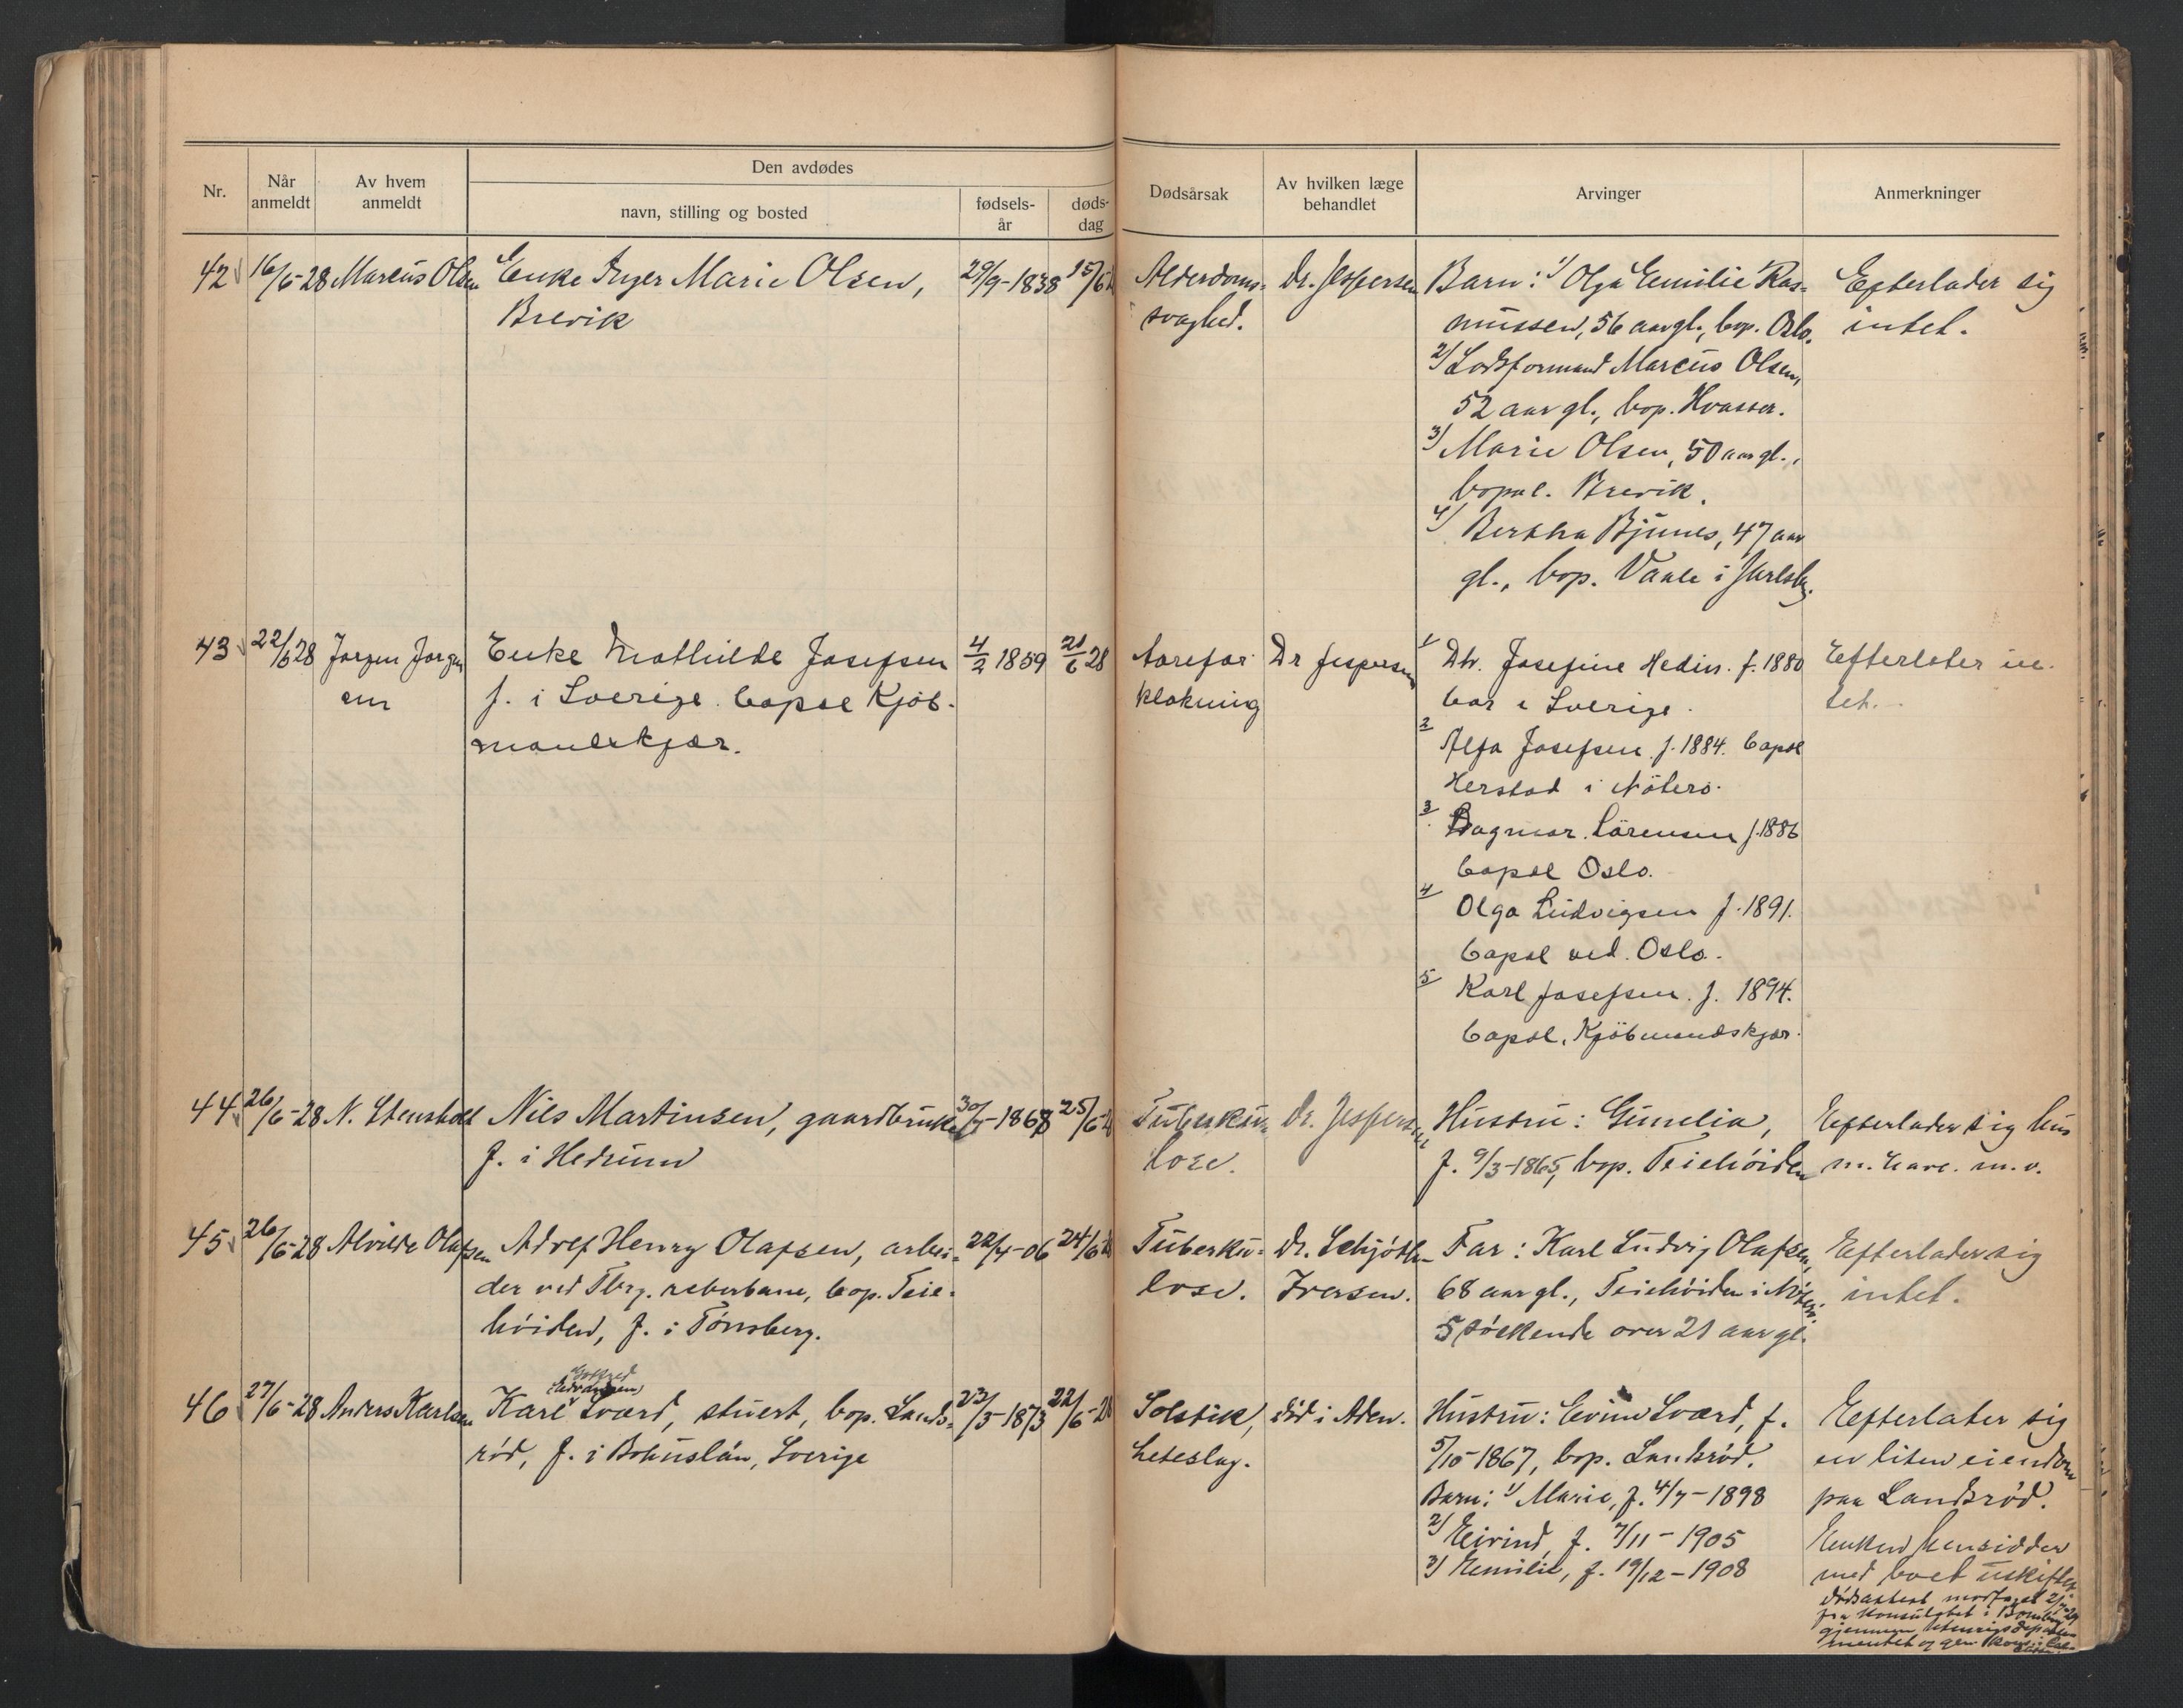 Nr.
Når anmeldt
Av hvem anmeldt
Den avdødes
navn, stilling og bosted
fødselsår
dødsdag
Dødsårsak
Av hvilken læge behandlet
Arvinger
Anmerkninger
42 16/6-28 Marcus Olsen Enke Inger Marie Olsen, 29/9-1838 15/6 Alderdoms- Dr. Jespersen Barn: 1/ Olga Emilie Ras- Efterlader sig
Brevik svaghed. mussen, 56 aar gl., bop. Oslo. intet.
2/ Lodsformand Marcus Olsen,
52 aar gl., bop. Hvasser.
3/ Marie Olsen, 50 aar gl.,
bopæl. Brevik.
4/ Bertha Bjunes, 47 aar
gl., bop. Vaale i Jarlsbg.
43 22/6 28 Jørgen Jørgen Enke Mathilde Josefsen 4/2 1859 21/6 28 Aarefor- Dr Jespersen 1/ Dtr. Josefine Hedin. f. 1880 Efterlater in-
sen f. i Sverige. bopæl Kjøb- klakning bor i Sverige. tet.
mandskjær.
2/ Alfa Josefsen f. 1884. bopæl
Herstad i Nøterø.
3/ Dagmar Sørensen f. 1886
bopæl Oslo.
4/ Olga Ludvigsen f. 1891.
bopæl ved Oslo.
5/ Karl Josefsen. f. 1894.
bopæl. Kjøbmandskjær.
44 26/6-28 N. Stensholt Nils Martinsen, gaardbruker 30/7-1868 25/6-28 Tuberku- Dr. Jespersen Hustru: Gunelia, Efterlader sig hus
f. i Hedrum lose. f. 9/3-1865, bop. Teiehøiden m. have m.v.
45 26/6-28 Alvilde Olafsen Adolf Henry Olafsen, arbei- 22/4-06 24/6 28 Tuberku- Dr. Schjøth- Far: Karl Ludvig Olafsen, Efterlader sig
der ved Tbrg. reberbane, bop. Teie- lose. Iversen. 68 aar gl., Teiehøiden i Nøterø. intet.
høiden, f. i Tønsberg. 5 søskende over 21 aar gl.
46 27/6-28 Anders Karlsen Karl Sværd, stuert, bop. Lands- 23/3-1873 22/6-28 Solstik, død i Aden. Hustru: Sværd, f. Efterlater sig
rød, f. i Bohuslän, Sverige heteslag. 5/10-1867, bop. Landsrød. en liten eiendom
Barn: 1/ Marie, f. 4/7-1898 paa Landsrød.
2/ Eivind, f. 7/11-1905 Enken hensidder
3/ Emilie, f. 19/12-1908 med boet uskiftet
Dødsattest mottaget
fra Konsulatet i Bombay
gjennem Utenriksdeparte-
mentet og